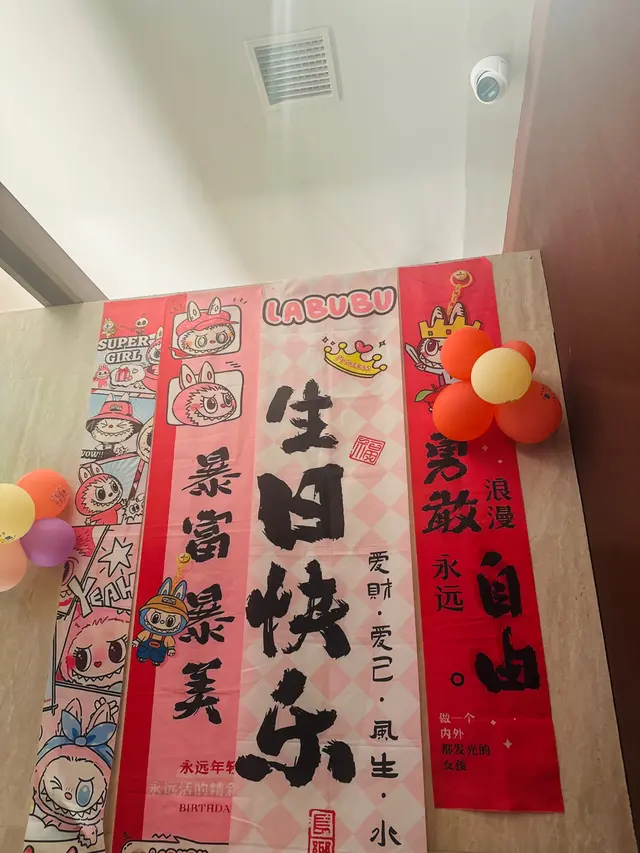 SUPER
GIRL
WOW!!
YEAH
暴富暴美
永远年轻
永远活的精彩
BIRTHDA
LABUBU
PRINCESS
生日快乐
福
爱財·爱己·風生·水
勇敢
浪漫
永远
自由。
做一个
内外
都发光的
女孩